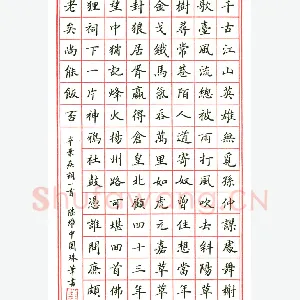 千古江山英雄無覓孫仲謀處舞榭
歌臺風流總被雨打風吹去斜陽草
樹尋常巷陌人道寄奴曾住想當年
金戈鐵馬氣吞萬里如虎元嘉草草
封狼居胥贏得倉皇北顧四十三年
望中猶記烽火揚州路可堪回首佛
狸祠下一片神鴉社鼓憑誰問廉頗
老矣尚能飯否
辛棄疾詞一首